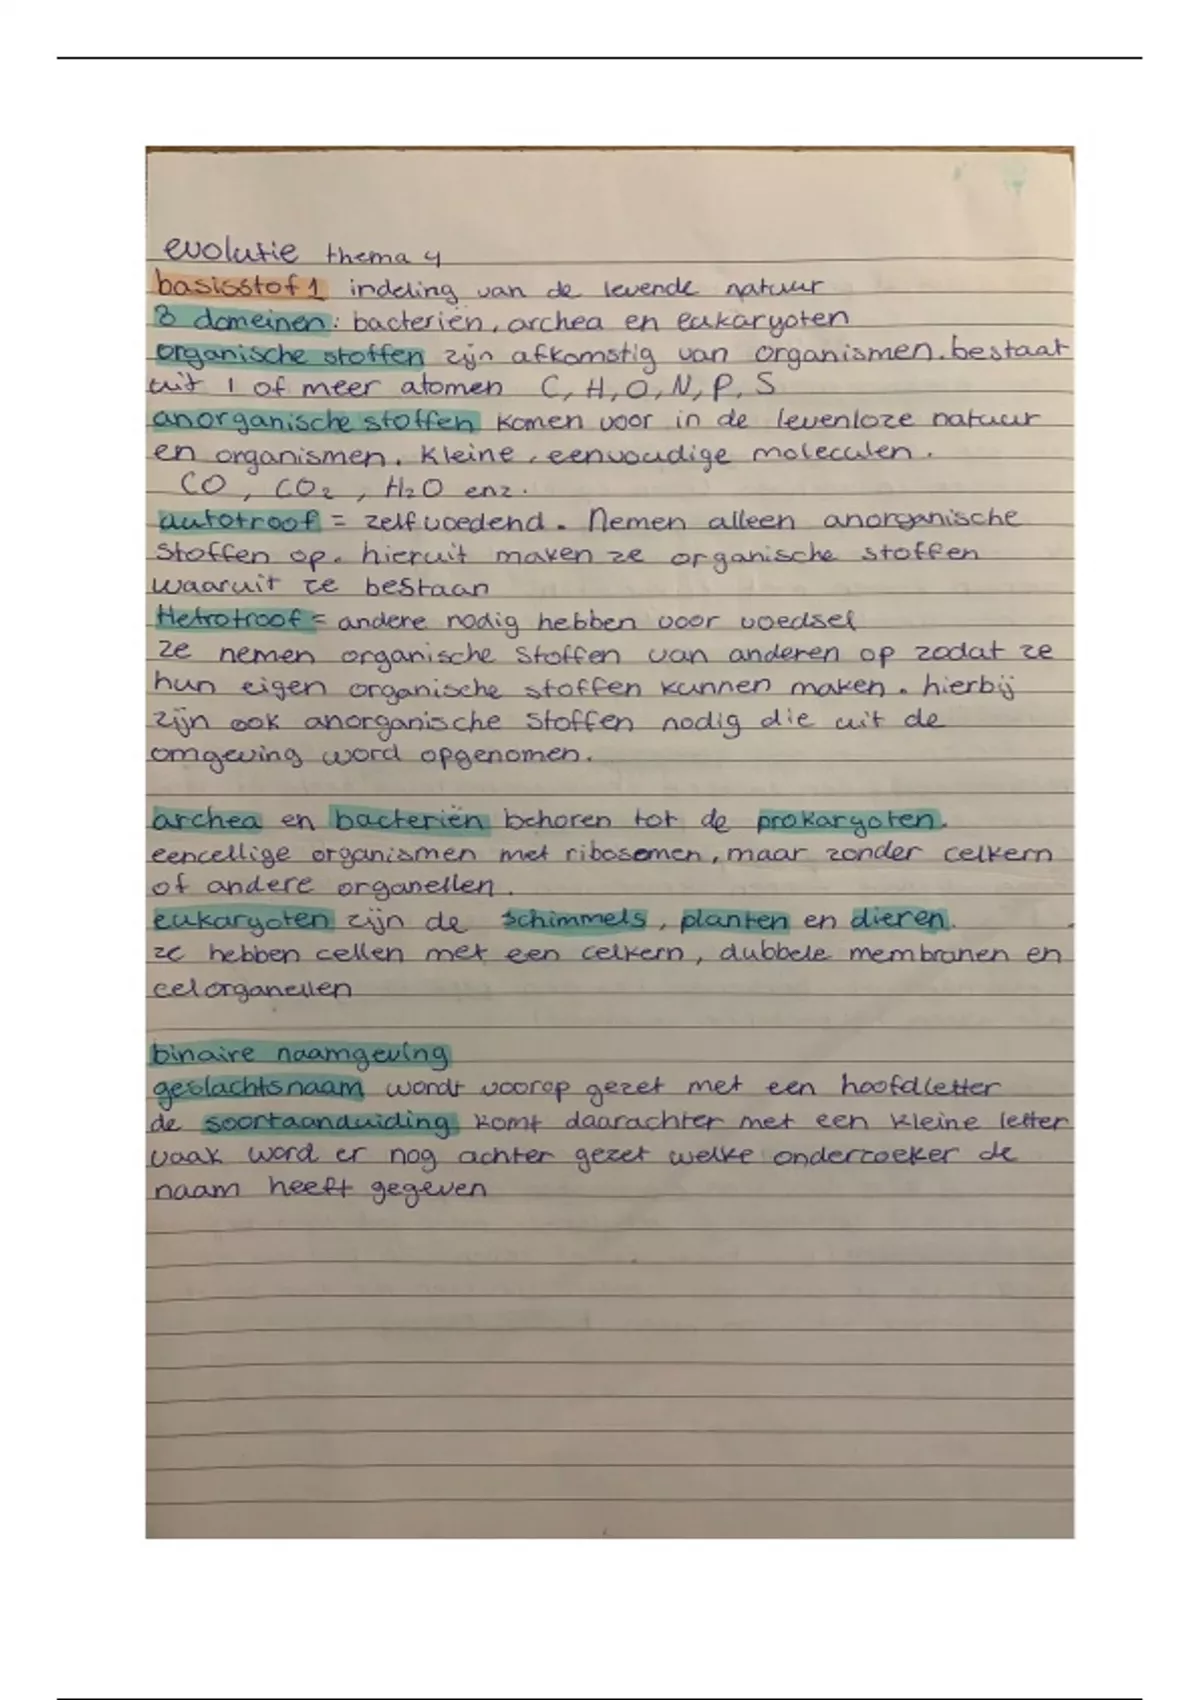 evolutie thema 4
basisstof 1 indeling van de levende natuur
3 domeinen: bacteriën, archea en eukaryoten
organische stoffen zijn afkomstig van organismen. bestaat
uit 1 of meer atomen C, H, O, N, P, S
anorganische stoffen komen voor in de levenloze natuur
en organismen. kleine, eenvoudige moleculen.
CO, CO₂, H₂O enz.
autotroof = zelfvoedend. Nemen alleen anorganische
stoffen op. hieruit maken ze organische stoffen
waaruit ze bestaan
Hetrotroof = andere nodig hebben voor voedsel
ze nemen organische stoffen van anderen op zodat ze
hun eigen organische stoffen kunnen maken. hierbij
zijn ook anorganische stoffen nodig die uit de
omgeving word opgenomen.
archea en bacteriën behoren tot de prokaryoten.
eencellige organismen met ribosomen, maar zonder celkern
of andere organellen.
eukaryoten zijn de schimmels, planten en dieren.
ze hebben cellen met een celkern, dubbele membranen en
celorganellen
binaire naamgeving
geslachtsnaam wordt voorop gezet met een hoofdletter
de soortaanduiding komt daarachter met een kleine letter
vaak word er nog achter gezet welke onderzoeker de
naam heeft gegeven